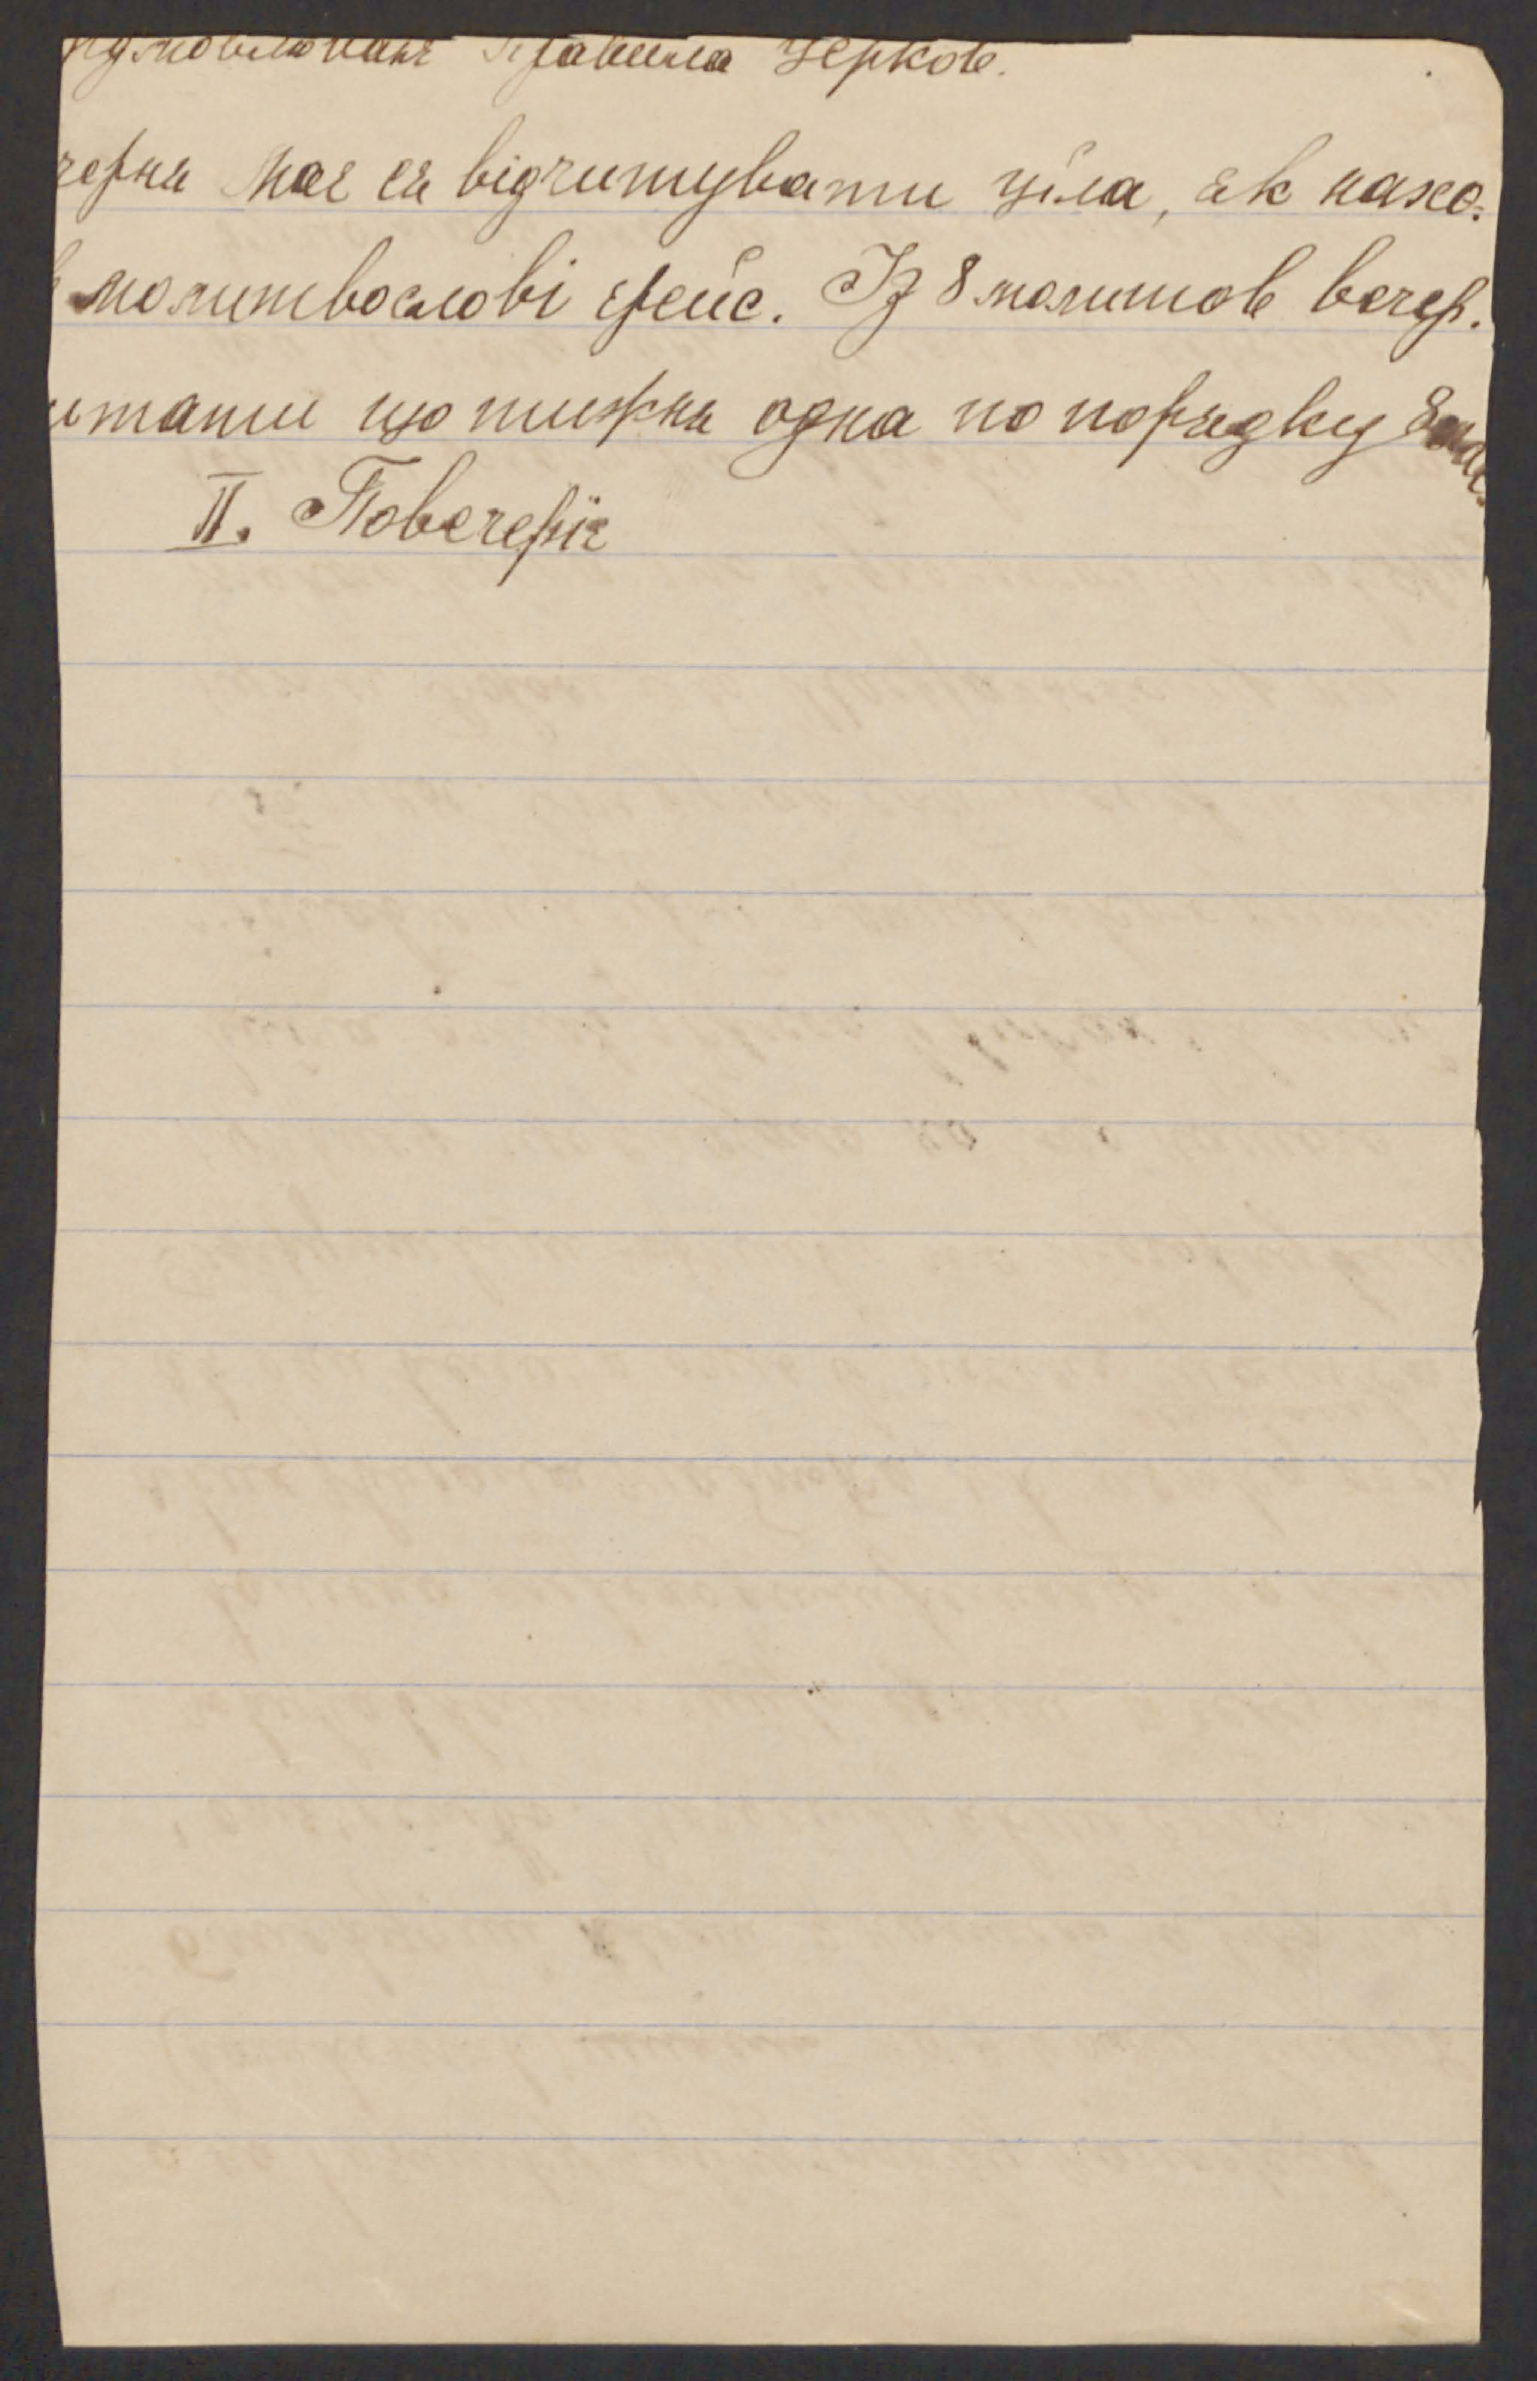 відмовлюванє Правила Церков.
черня має ся відчитувати ціла, як нахо-
молитвослові єрейс. Із 8 молитов вечер.
итати що тижня одна по порядку 8
II. Повечеріє